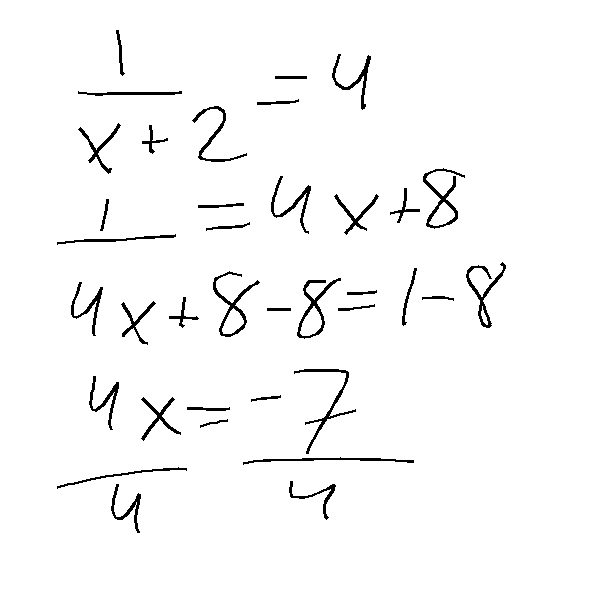 1
x+2 = 4
1 = 4x+8
4x+8-8=1-8
4x=-7
4 4